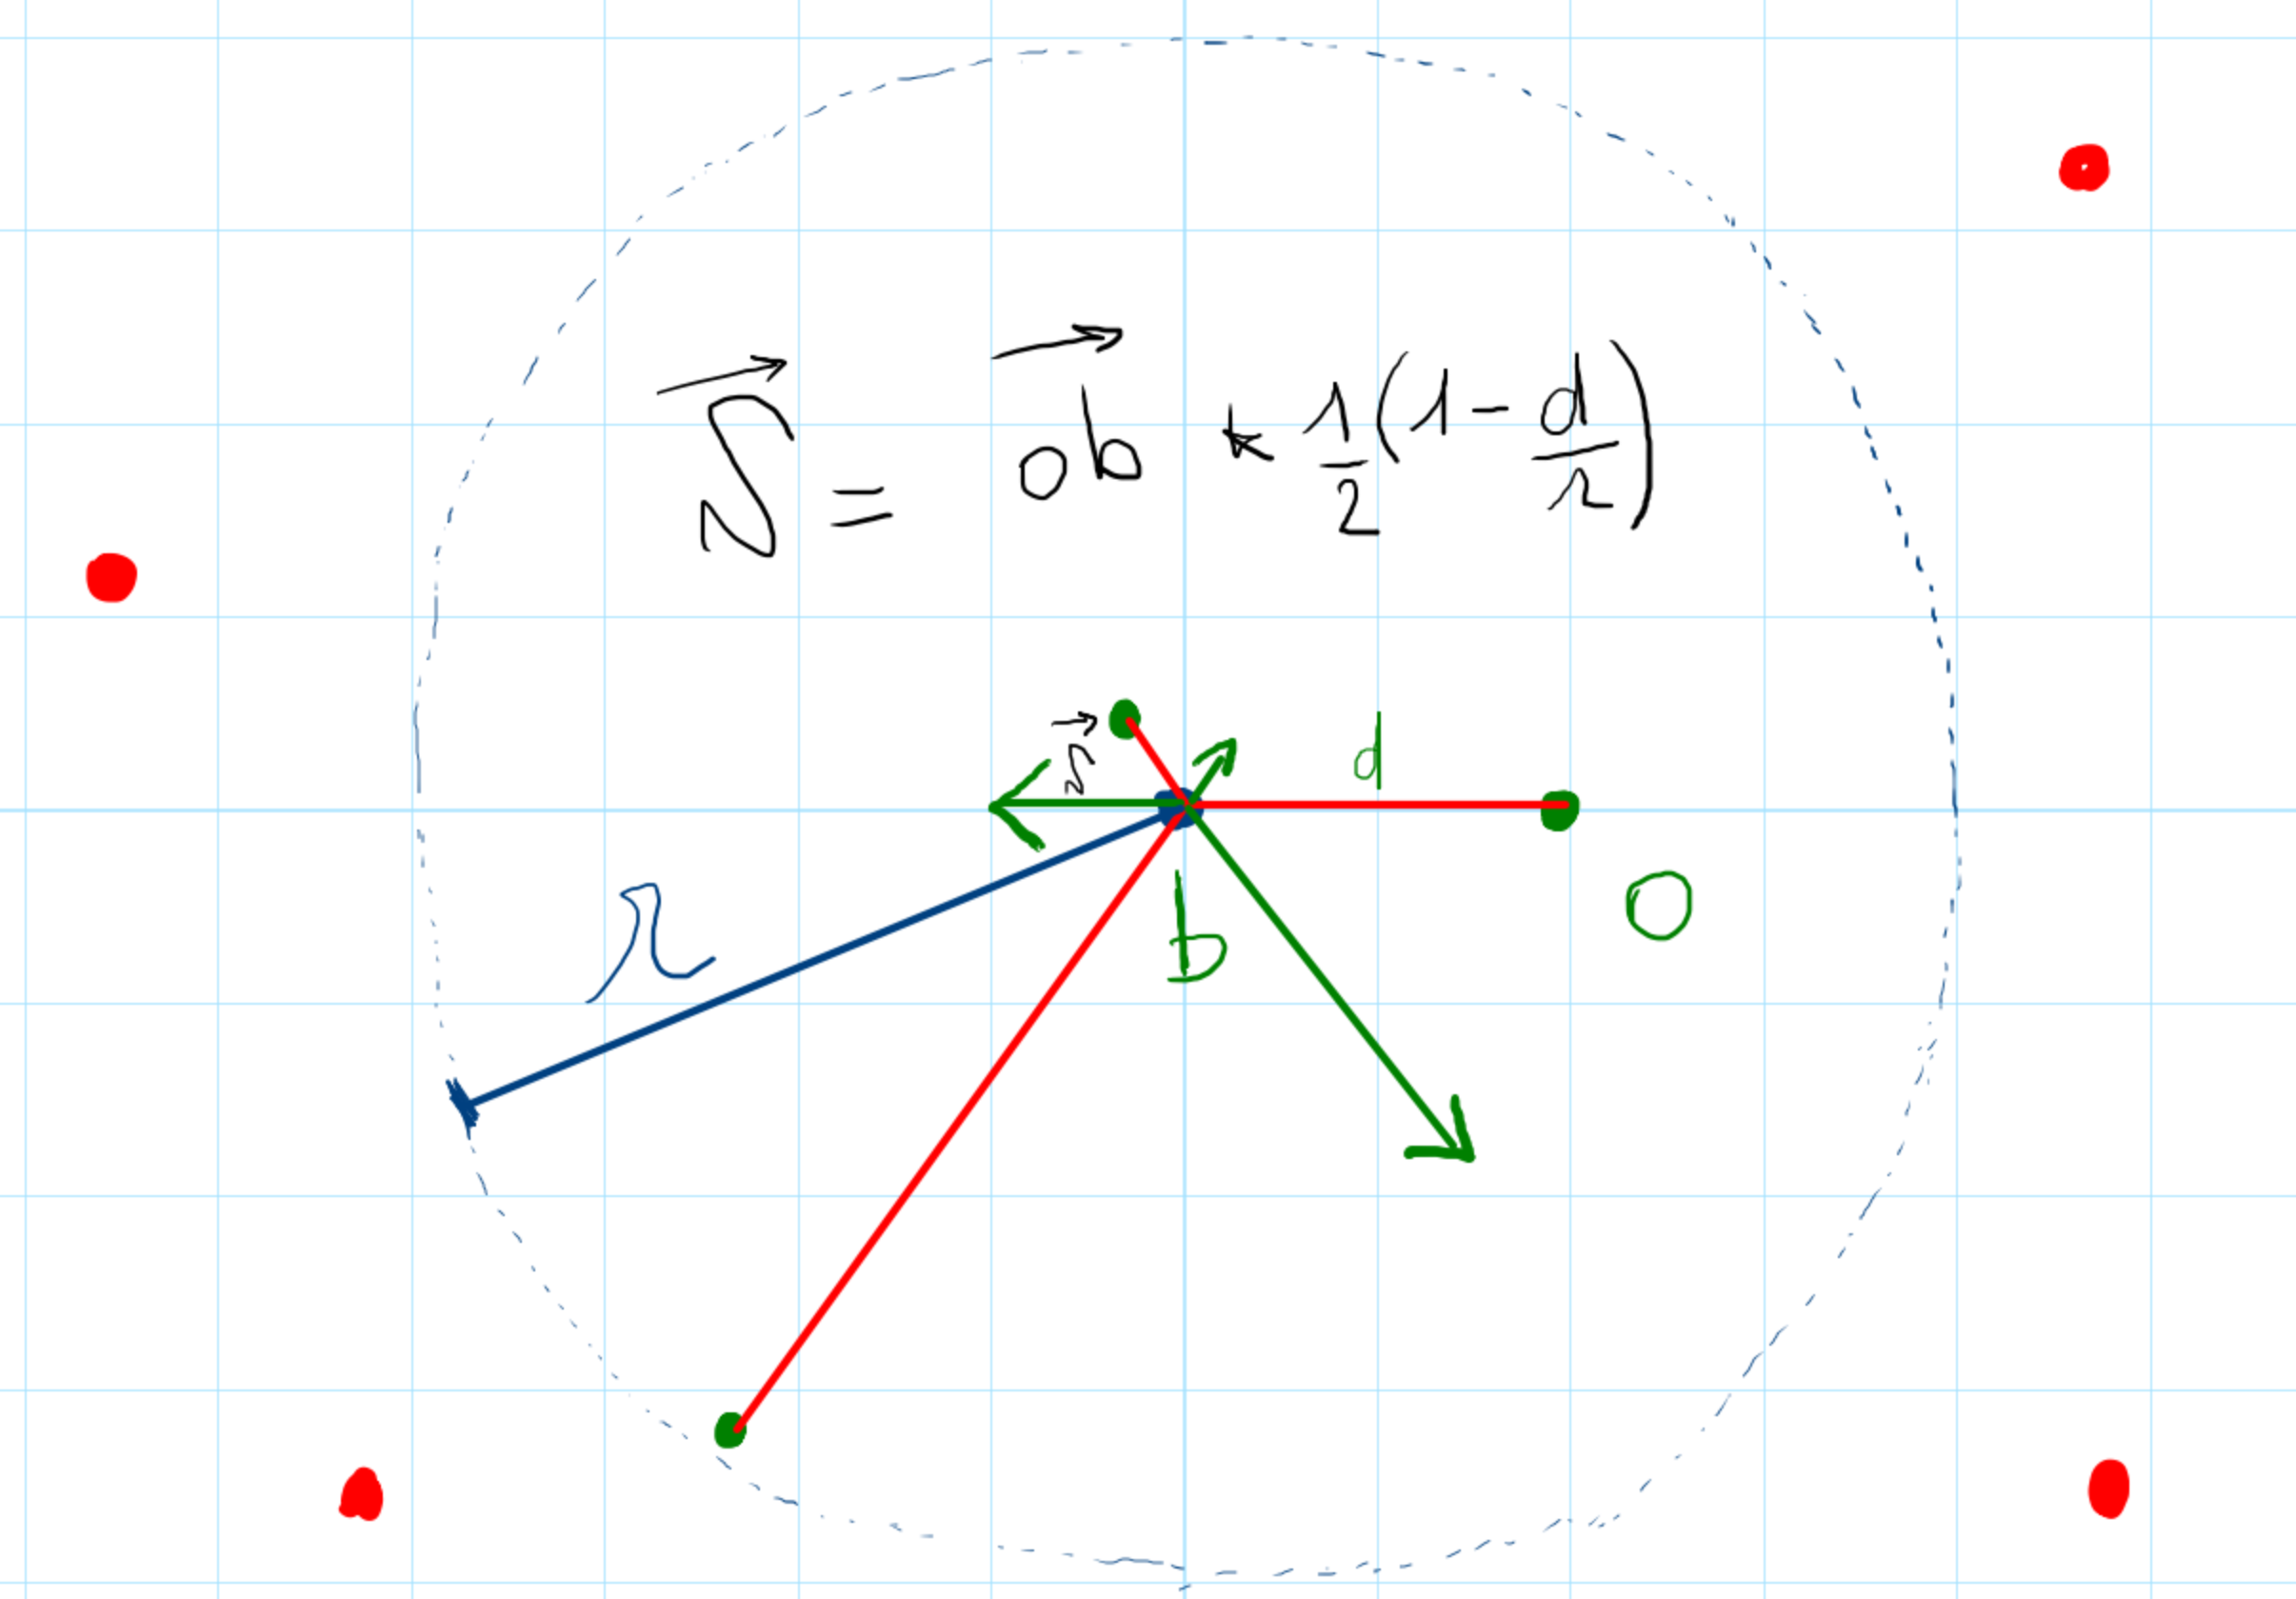 S⃗ = ob⃗ * 1/2 (1 - d/r)
s⃗
d
r
b
O